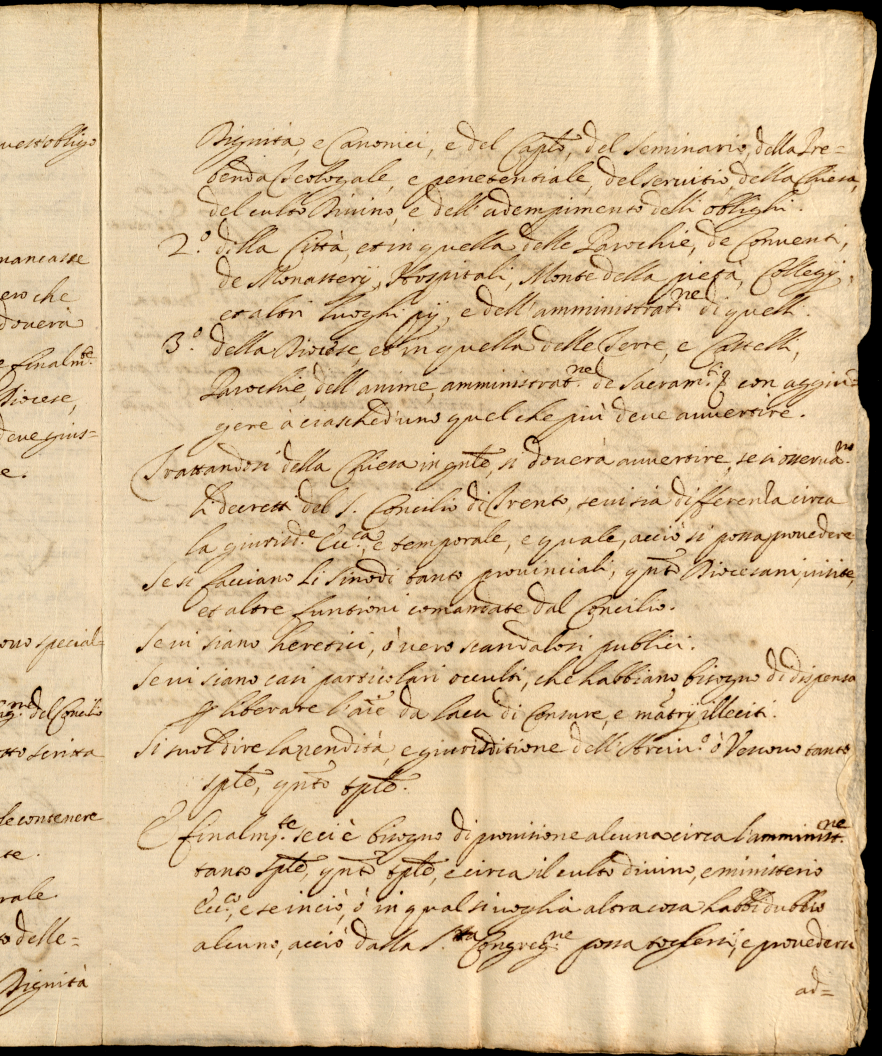 uesto obligo
mancasse
ero che
doverà
e finalm.te
Diocese,
deve gius=
e.
ono special=
del Concilio
tto scritta
se contenere
te.
rale.
to delle=
Dignità
Dignità, e Canonici, e del Caplo, del Seminario, della Pre=
benda Teologale, e penetentiale, del servitio, della Chiesa,
del culto Divino, e dell'adempimento delli oblighi.
2.° della Città, et in quella delle Parochie, de Conventi,
de Monasterij, Hospitali, Monte della pietà, Collegij,
et altri luoghi pij, e dell'amministrat.ne di quelli.
3.° della Diocese, et in quella delle Terre, e Castelli,
Parochie, dell'anime, amministrat.ne de Sacram.ti con aggiun=
gere à ciasched'uno quel che più deve avvertire.
Trattandosi della Chiesa in gñle, si doverà avvertire, se si osserva.no
li decreti del S. Concilio di Trento, se vi sia differenza circa
la giurisd.e Ecc.ca, e temporale, e quale, acciò si possa provedere
Se si facciano li Sinodi tanto provinciali, qñto Diocesani, visite,
et altre funtioni comandate dal Concilio.
Se vi siano heretici, ò vero scandalosi publici.
Se vi siano casi particolari occulti, che habbiano bisogno di dispensa
p liberare l'aie da lacci di Censure, e mãtrij illeciti.
Si suol dire la rendità, e giurisditione dell'Arciv.° ò Vescovo tanto
splẽ, qñto tplẽ.
E finalm.te se ci è bisogno di provisione alcuna circa l'amminist.ne
tanto Splẽ, qñto tplẽ, e circa il culto divino, e ministerio
Ecc.co, e se in ciò, ò in qual si voglia altra cosa habbi dubbio
alcuno, acciò dalla S.ta Congreg.ne possa togliersi, e provedersi
ad=